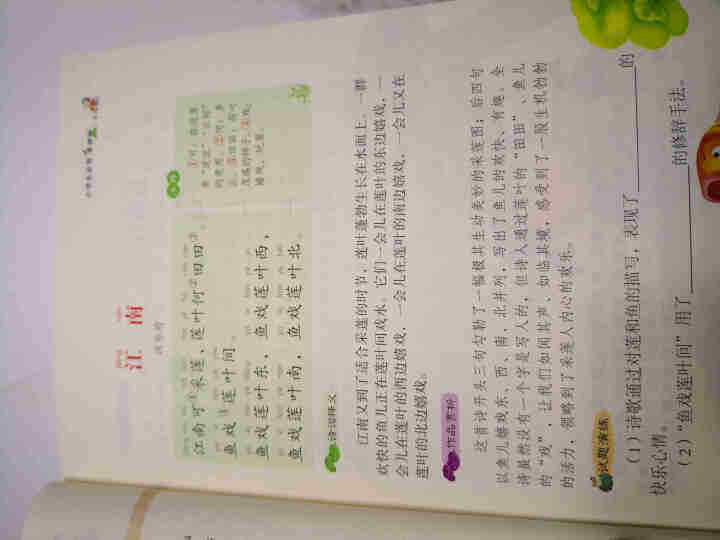 江南
汉乐府
江南可①采莲，莲叶何②田田③。
鱼戏④莲叶间。
鱼戏莲叶东，鱼戏莲叶西，
鱼戏莲叶南，鱼戏莲叶北。
诗词释义
江南又到了适合采莲的时节，莲叶蓬勃生长在水面上。一群
欢快的鱼儿正在莲叶间戏水。它们一会儿在莲叶的东边嬉戏，一
会儿在莲叶的西边嬉戏，一会儿在莲叶的南边嬉戏，一会儿又在
莲叶的北边嬉戏。
作品赏析
这首诗开头三句勾勒了一幅极其生动美妙的采莲图；后四句
以鱼儿嬉戏东、西、南、北并列，写出了鱼儿的欢快、有趣。全
诗虽然没有一个字是写人的，但诗人通过莲叶的“田田”、鱼儿
的“戏”，让我们如闻其声、如临其境，感受到了一股生机勃勃
的活力，领略到了采莲人内心的欢乐。
试题演练
（1）诗歌通过对莲和鱼的描写，表现了的
快乐心情。
（2）“鱼戏莲叶间”用了的修辞手法。